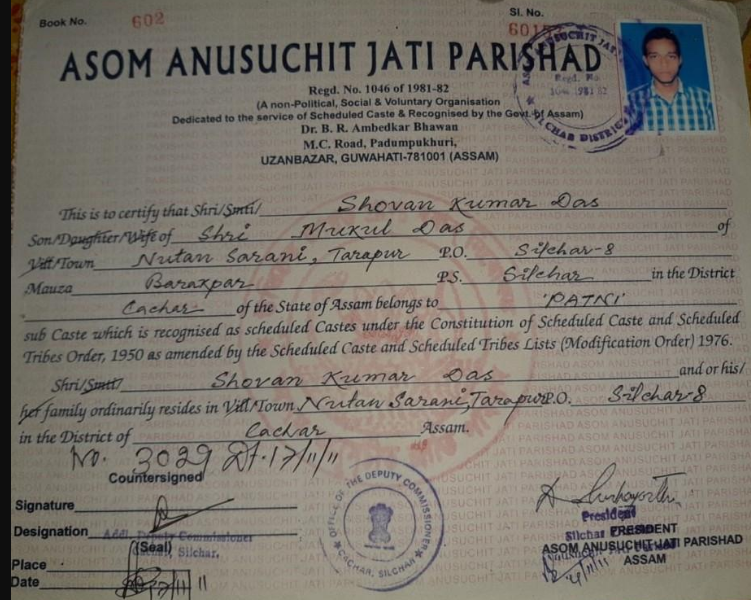 Book No. 602
Sl. No.
ASOM ANUSUCHIT JATI PARISHAD
Regd. No. 1046 of 1981-82
(A non-Political, Social & Voluntary Organisation
Dedicated to the service of Scheduled Caste & Recognised by the Govt. of Assam)
Dr. B. R. Ambedkar Bhawan
M.C. Road, Padumpukhuri,
UZANBAZAR, GUWAHATI-781001 (ASSAM)
This is to certify that Shri/Smti/ Shovan Kumar Das
Son/Daughter/Wife of Shri Mukul Das of
Vill/Town Nutan Sarani, Tarapur P.O. Silchar-8
Mauza Barakpar P.S. Silchar in the District
Cachar of the State of Assam belongs to 'PATNI'
sub Caste which is recognised as scheduled Castes under the Constitution of Scheduled Caste and Scheduled
Tribes Order, 1950 as amended by the Scheduled Caste and Scheduled Tribes Lists (Modification Order) 1976.
Shri/Smti/ Shovan Kumar Das and or his/
her family ordinarily resides in Vill/Town Nutan Sarani, Tarapur P.O. Silchar-8
in the District of Cachar Assam.
No. 3029 Dt. 17/11/11
Countersigned
Signature
Designation Addl. Deputy Commissioner
(Seal) Silchar.
Place
Date 17/11/11
OFFICE OF THE DEPUTY COMMISSIONER
CACHAR, SILCHAR
President
Silchar
PRESIDENT
ASOM ANUSUCHIT JATI PARISHAD
ASSAM